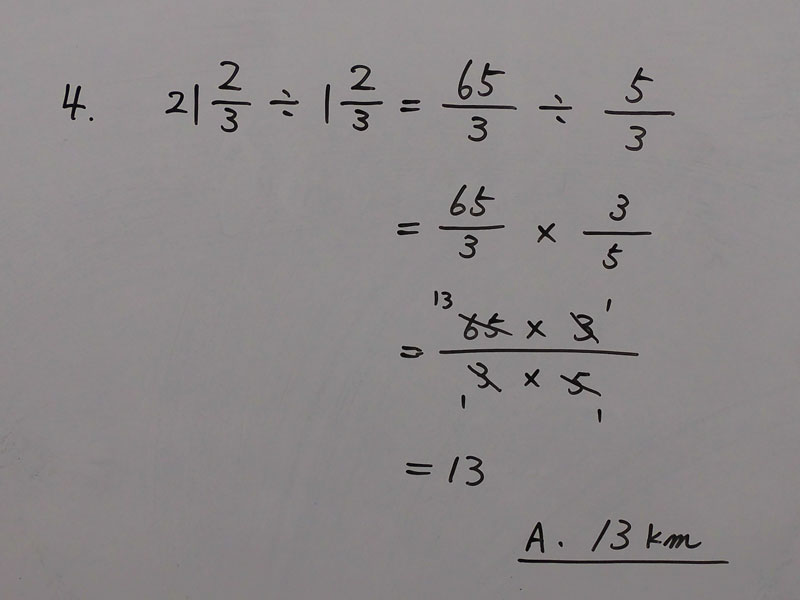 4. 21 2/3 ÷ 1 2/3 = 65/3 ÷ 5/3
= 65/3 × 3/5
= 13 65 × 3 1 / 1 3 × 5 1
= 13
A. 13 km